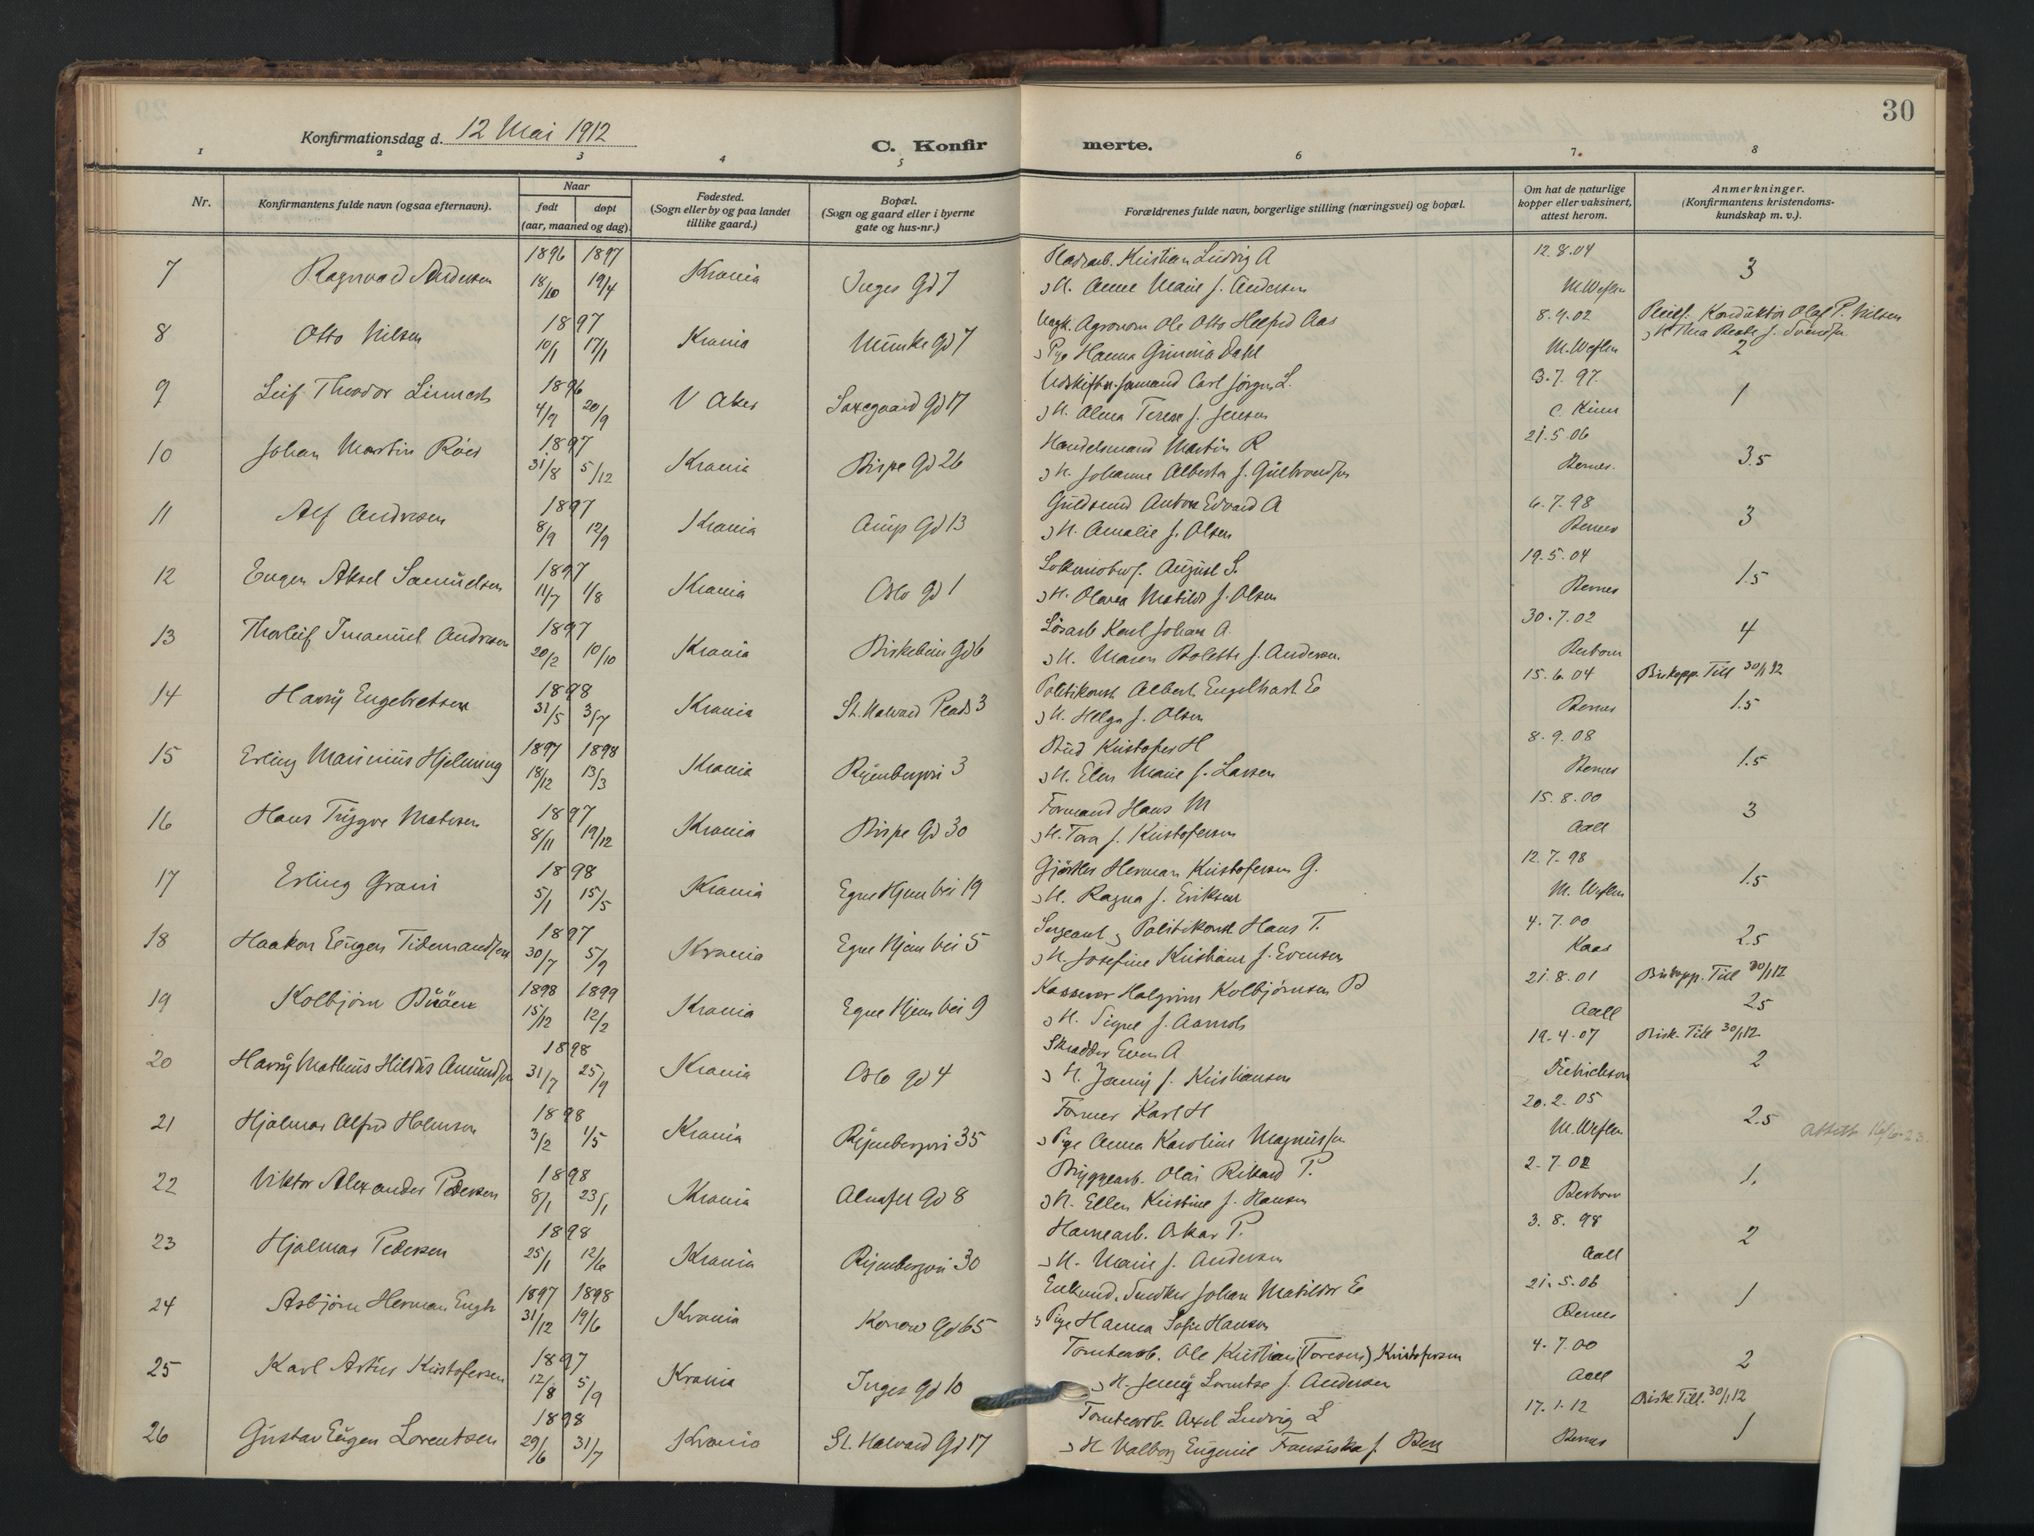 30
Konfirmationsdag d. 12 Mai 1912
C. Konfirmerte.
1 2 3 4 5 6 7. 8
Nr.
Konfirmantens fulde navn (ogsaa efternavn).
Naar
født døpt
(aar, maaned og dag).
Fødested.
(Sogn eller by og paa landet
tillike gaard.)
Bopæl.
(Sogn og gaard eller i byerne
gate og hus-nr.)
Forældrenes fulde navn, borgerlige stilling (næringsvei) og bopæl.
Om hat de naturlige
kopper eller vaksinert,
attest herom.
Anmerkninger.
(Konfirmantens kristendoms-
kundskap m. v.).
1896 1897 Kristian Ludvig A 12.8.04
7 Ragnvald Andersen 18/10 19/4 Krania Inges Gd 7 H. Anne Marie f. Andersen M. Weflen 3
1897 Agronom Ole Otto Aas 8.9.02 Konduktør Olaf P. Nilsen
8 Otto Nilsen 10/1 17/1 Krania Munke Gd 7 Pige Hanna Dahl M. Weflen 2
1896 Carl Jørgen L. 3.7.97.
9 Leif Theodor 4/9 20/9 V Aker Saxegaard Gd 17 H. Alma Terese f. Jensen 1
1897 Handelsmand Martin R 21.5.06
10 Johan Martin 31/8 5/12 Krania Bispe Gd 26 H. Johanne Alberta f. Gulbrandsen Bernes. 3.5
1897 Anton Edvard A 6.7.98
11 Alf Andresen 8/9 12/9 Krania Gd 13 H. Amalie f. Olsen Bernes 3
1897 August S. 19.5.04
12 Eugen Aksel Samuelsen 11/7 1/8 Krania Oslo gd 1 H. Matilde f. Olsen Bernes 1.5
1897 Løsarb Karl Johan A. 30.7.02
13 Thorleif Imanuel Andresen 20/2 10/10 Krania Birkebein Gd 6 H. Maren Bolette f. Andersen. 4
1898 Politikonst Albert Engelhart E 15.6.04 Biskopp. Till 30/1 12
14 Harry Engebretsen 31/5 3/7 Krania St. Halvard Plads 3 H. Helga f. Olsen Bernes 1.5
1897 1898 Bud Kristofer H 8.9.08
15 Erling Marinius Hjelming 18/12 13/3 Krania Ryenbergvei 3 H. Elen Marie f. Larsen Bernes 1.5
1897 Formand Hans M 15.8.00
16 Hans Trygve Matisen 8/11 19/12 Krania Bispe Gd 30 H. Tora f. Kristofersen Aall 3
1898 Gjørtler Herman Kristofersen G. 12.7.98
17 Erling Grani 5/1 15/5 Krania Egne Hjem vei 19 H. Ragna f. Eriksen M. Weflen 1.5
1897 Sergeant & Politikonst Hans T. 4.7.00
18 Haakon Eugen Tidemandsen 30/7 5/9 Krania Egne Hjem vei 5 H. Josefine Kristiane f. Evensen Kaas 2.5
1898 1899 Kasserer Halgrim Kolbjørnsen B 21.8.01 Biskopp. Till 30/1 12
19 Kolbjørn Buøen 15/12 12/2 Krania Egne Hjem vei 9 H. Signe f. Aamodt Aall 2.5
1898 Skrædder Even A 19.4.07 Bisk. Till 30/1 12
20 Harry Mathius Hildus Amundsen 31/7 25/9 Krania Oslo gd 4 H. Jenny f. Kristiansen 2
1898 Former Karl H 20.2.05
21 Hjalmar Alfred Holmsen 3/2 1/5 Krania Ryenbergvei 35 Pige Anna Karoline Magnussen M. Weflen 2.5
1898 Bryggearb. Olai Rikard P. 2.7.02
22 Viktor Alexander Pedersen 8/1 23/1 Krania Gd 8 H. Ellen Kristine f. Hansen Berbom 1.
1898 Havnearb. Oskar P. 3.8.98
23 Hjalmar Pedersen 25/1 12/6 Krania Ryenbergvei 30 H. Marie f. Andersen Aall 2
1897 1898 Smedker Johan Matildor E 21.5.06
24 Asbjørn Herman Engh 31/12 19/6 Krania Konow Gd 65 Pige Hanna Sofie Hansen Bernes 1
1897 Tomtearb. Ole Kristian (Toresen) Kristofersen 4.7.00
25 Karl Artur Kristofersen 12/8 5/9 Krania Inges Gd 10 H. Jenny Lorentse f. Andersen Aall 2
1898 Tomtearb. Axel Ludvig L 17.1.12 Bisk. Till. 30/1 12
26 Gustav Eugen Lorentsen 29/6 31/7 Krania St. Halvard Gd 17 H Valborg Eugenie Fransiska f. Berg Bernes 1